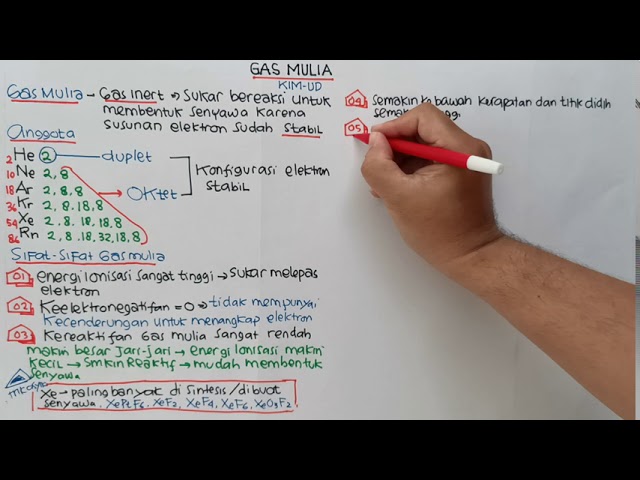 GAS MULIA
KIM-UD
Gas Mulia - Gas Inert → Sukar bereaksi untuk
membentuk senyawa karena
susunan elektron sudah stabil
Anggota
2 He 2 duplet
10 Ne 2, 8
18 Ar 2, 8, 8 → Oktet
36 Kr 2, 8, 18, 8
54 Xe 2, 8, 18, 18, 8
86 Rn 2, 8, 18, 32, 18, 8
Konfigurasi elektron
stabil
Sifat-Sifat Gas mulia
01 energi Ionisasi sangat tinggi → Sukar melepas
elektron
02 Keelektronegatifan = 0 → tidak mempunyai
Kecenderungan untuk menangkap elektron
03 Kereaktifan Gas mulia sangat rendah
makin besar Jari-jari → energi Ionisasi makin
kecil → Smkin Reaktif → mudah membentuk
senyawa
Xe → paling banyak di sintesis /dibuat
senyawa. XePtF6, XeF2, XeF4, XeF6, XeO3F2
04 Semakin ke bawah kerapatan dan titik didih
05